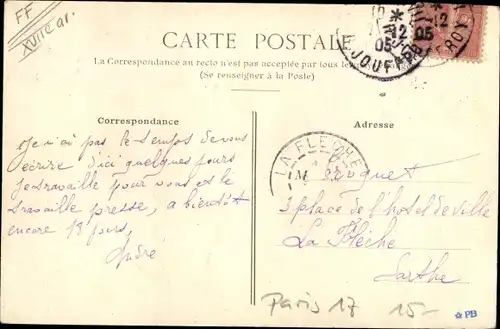 FF
XVIIe a1.
CARTE POSTALE
La Correspondance au recto n'est pas acceptée par tous
(Se renseigner à la Poste)
12
05
JOUFFROY
12
05
Correspondance
Adresse
Je n'ai pas le temps de vous
écrire d'ici quelques jours
Je travaille pour vous et le
travaille presse, a bientôt
encore 18 jours,
André
LA FLECHE
3 place de l'hotel de ville
La Flèche
Sarthe
Paris 17
15-
PB